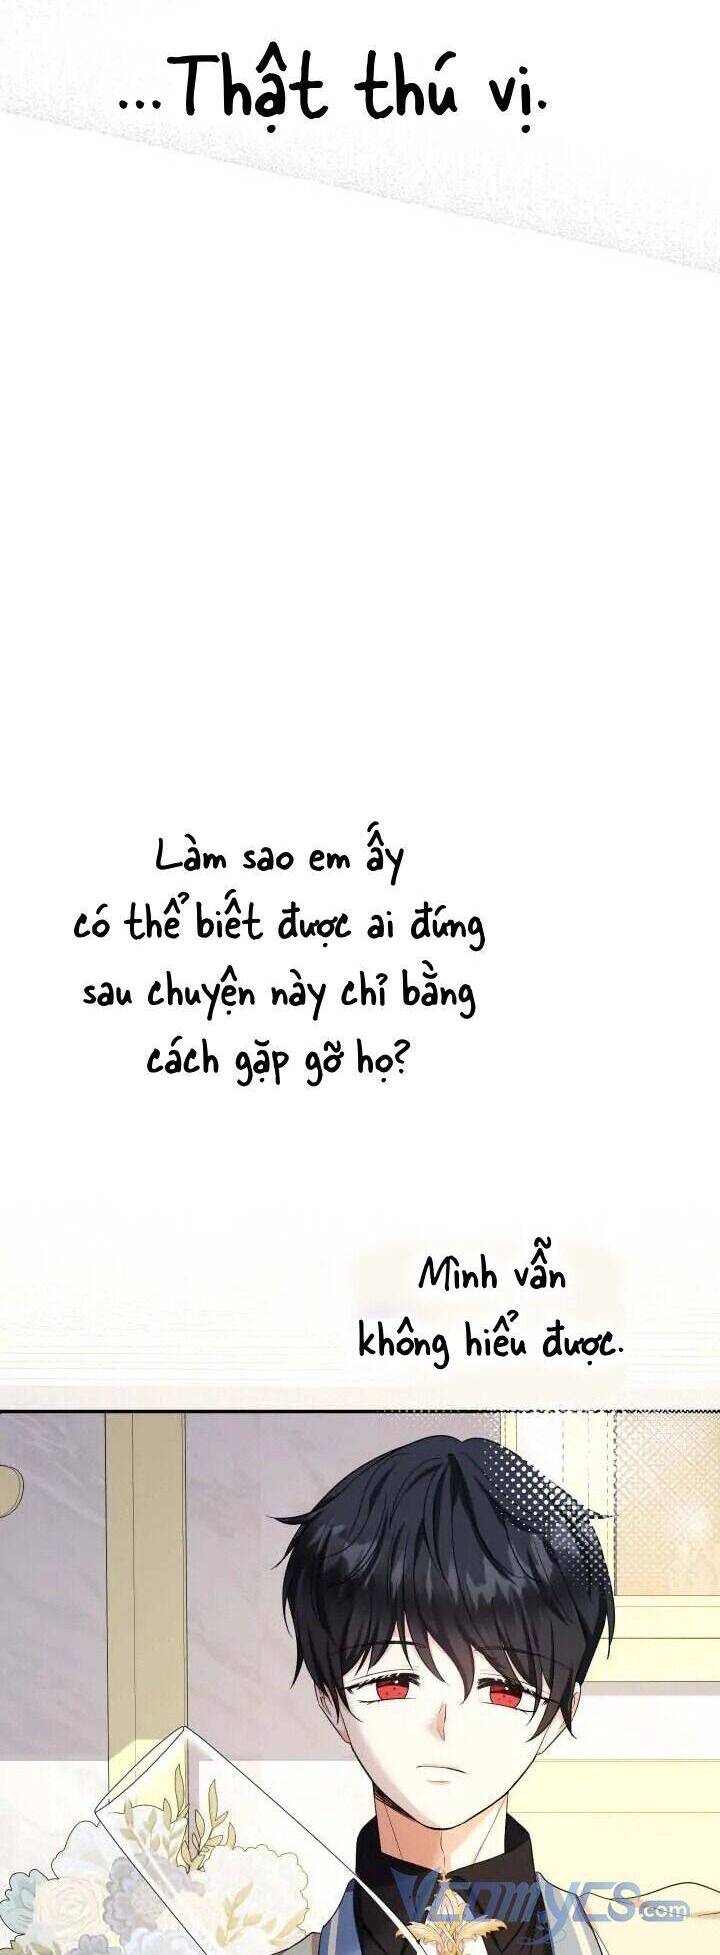 ...Thật thú vị.
Làm sao em ấy
có thể biết được ai đứng
sau chuyện này chỉ bằng
cách gặp gỡ họ?
Mình vẫn
không hiểu được.
VCOMYCS.com